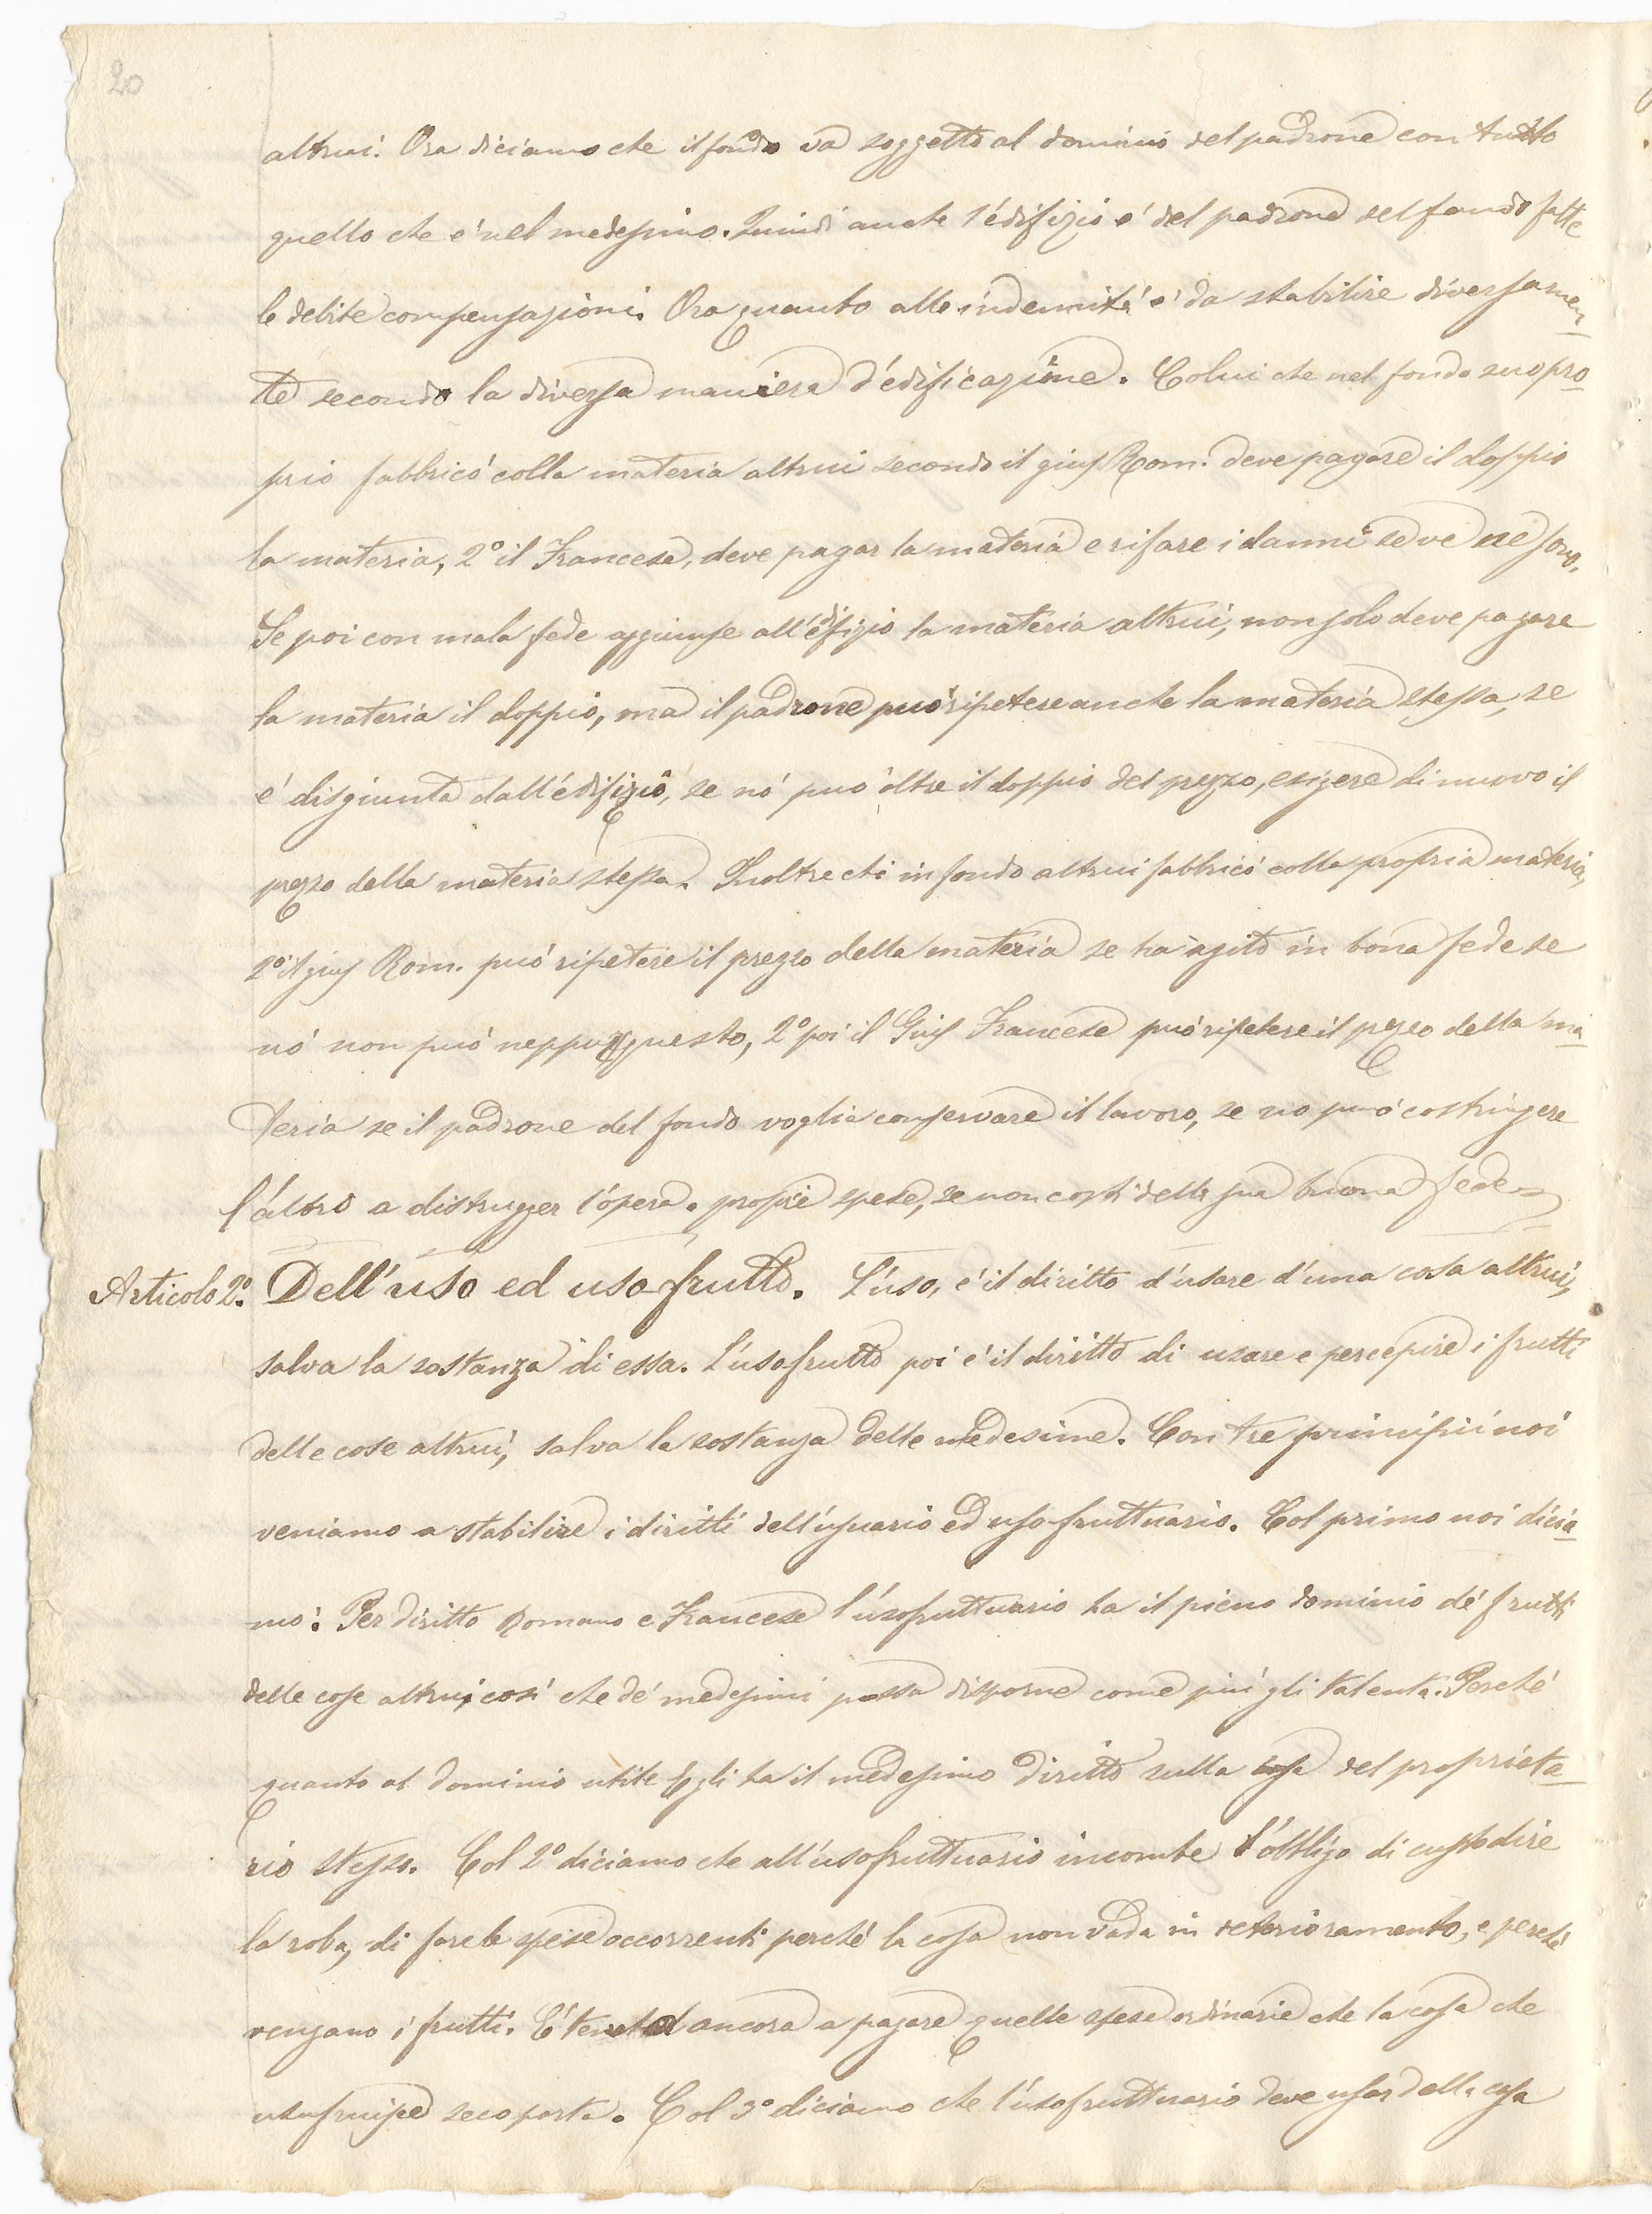 20
altrui. Ora diciamo che il fondo va soggetto al dominio del padrone con tutto
quello che é nel medesimo. Quindi anche l'édifizio é del padrone del fondo fatte
le debite compensazioni. Ora quanto alle indennitá é da stabilire diversamen-
te secondo la diversa maniera d'édificazione. Colui che nel fondo suo pro-
prio fabbricó colla materia altrui secondo il gius Rom. deve pagare il doppio
la materia, 2º il Francese, deve pagar la materia e rifare i danni se ve ne sono.
Se poi con mala fede aggiunse all'édifizio la materia altrui, non solo deve pagare
la materia il doppio, ma il padrone puó ripetere anche la materia stessa, se
é disgiunta dall'édifizio, se nó puó oltre il doppio del prezzo, esigere di nuovo il
prezzo della materia stessa. Inoltre chi in fondo altrui fabbricó colla propria materia,
2º il gius Rom. puó ripetere il prezzo della materia se ha agito in bona fede se
nó non puó neppur questo, 2º poi il Gius Francese puó ripetere il prezzo della ma-
teria se il padrone del fondo voglia conservare il lavoro, se no puó costringere
l'áltro a distrugger l'ópera a proprie spese, se non costi della sua buona fede
Articolo 2º. Dell'uso ed uso-frutto. L'úso, é il diritto d'usare d'una cosa altrui,
salva la sostanza di essa. L'úsofrutto poi é il diritto di usare e percepire i frutti
delle cose altrui, salva la sostanza delle medesime. Con tre principii noi
veniamo a stabilire i diritti dell'úsuario ed uso-fruttuario. Col primo noi dicia-
mo: Per diritto Romano e Francese l'úsofruttuario ha il pieno dominio dé frutti
delle cose altrui cosí che dé medesimi possa disporne come piú gli talenta. Perché
quanto al dominio utile Egli ha il medesimo diritto sulla cosa del proprieta-
rio stesso. Col 2º diciamo che all'úsofruttuario incombe l'óbbligo di custodire
la roba, di fare le spese occorrenti perché la cosa non vada in deterioramento, e perché
vengano i frutti. É tenuto ancora a pagare quelle spese ordinarie che la cosa che
usufruisce seco porta. Col 3º diciamo che l'úsofruttuario deve usar della cosa